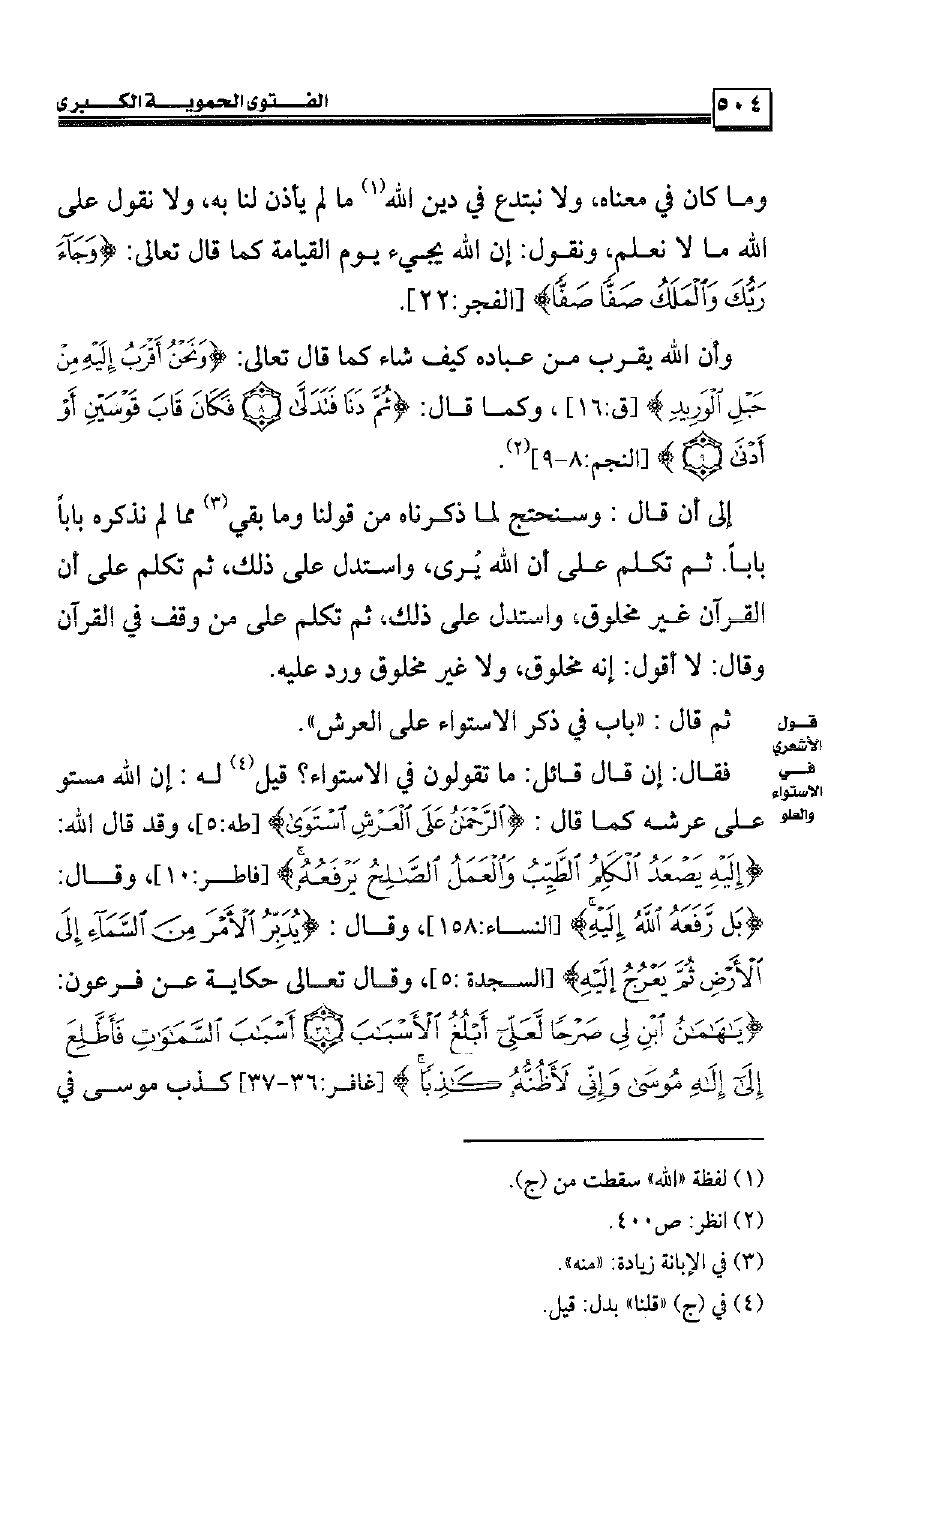 ٥٠٤
الفتوى الحموية الكبرى
وما كان في معناه، ولا نبتدع في دين الله(١) ما لم يأذن لنا به، ولا نقول على
الله ما لا نعلم، ونقول: إن الله يجيء يوم القيامة كما قال تعالى: ﴿وَجَآءَ
رَبُّكَ وَٱلْمَلَكُ صَفًّا صَفًّا﴾ [الفجر:٢٢].
وأن الله يقرب من عباده كيف شاء كما قال تعالى: ﴿وَنَحْنُ أَقْرَبُ إِلَيْهِ مِنْ
حَبْلِ ٱلْوَرِيدِ﴾ [ق:١٦]، وكما قال: ﴿ثُمَّ دَنَا فَتَدَلَّىٰ ۝٨ فَكَانَ قَابَ قَوْسَيْنِ أَوْ
أَدْنَىٰ ۝٩﴾ [النجم:٨-٩](٢).
إلى أن قال : وسنحتج لما ذكرناه من قولنا وما بقي(٣) مما لم نذكره باباً
باباً. ثم تكلم على أن الله يُرى، واستدل على ذلك، ثم تكلم على أن
القرآن غير مخلوق، واستدل على ذلك، ثم تكلم على من وقف في القرآن
وقال: لا أقول: إنه مخلوق، ولا غير مخلوق ورد عليه.
ثم قال : «باب في ذكر الاستواء على العرش».
فقال: إن قال قائل: ما تقولون في الاستواء؟ قيل(٤) له : إن الله مستو
على عرشه كما قال : ﴿ٱلرَّحْمَٰنُ عَلَى ٱلْعَرْشِ ٱسْتَوَىٰ﴾ [طه:٥]، وقد قال الله:
﴿إِلَيْهِ يَصْعَدُ ٱلْكَلِمُ ٱلطَّيِّبُ وَٱلْعَمَلُ ٱلصَّٰلِحُ يَرْفَعُهُۥ﴾ [فاطر:١٠]، وقال:
﴿بَل رَّفَعَهُ ٱللَّهُ إِلَيْهِ﴾ [النساء:١٥٨]، وقال : ﴿يُدَبِّرُ ٱلْأَمْرَ مِنَ ٱلسَّمَآءِ إِلَى
ٱلْأَرْضِ ثُمَّ يَعْرُجُ إِلَيْهِ﴾ [السجدة :٥]، وقال تعالى حكاية عن فرعون:
﴿يَٰهَٰمَٰنُ ٱبْنِ لِى صَرْحًا لَّعَلِّىٓ أَبْلُغُ ٱلْأَسْبَٰبَ ۝٣٦ أَسْبَٰبَ ٱلسَّمَٰوَٰتِ فَأَطَّلِعَ
إِلَىٰٓ إِلَٰهِ مُوسَىٰ وَإِنِّى لَأَظُنُّهُۥ كَٰذِبًا﴾ [غافر:٣٦-٣٧] كذب موسى في
قول
الأشعري
في
الاستواء
والعلو
(١) لفظة «الله» سقطت من (ج).
(٢) انظر: ص٤٠٠.
(٣) في الإبانة زيادة: «منه».
(٤) في (ج) «قلنا» بدل: قيل.